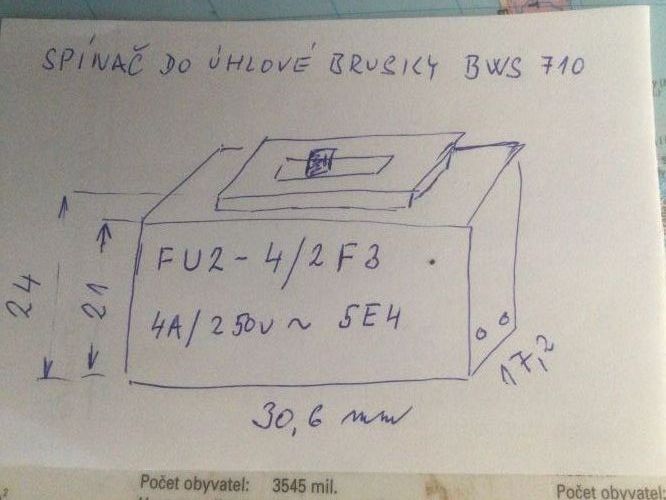 SPÍNAČ DO ÚHLOVÉ BRUSKY BWS 710
FU2-4/2F3
4A/250V~ 5E4
24
21
17,2
30,6 mm
Počet obyvatel: 3545 mil.
Počet obyvatel: